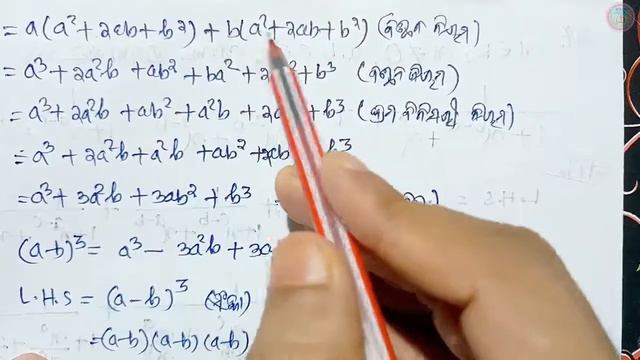 = a(a²+2ab+b²) + b(a²+2ab+b²) (ବଣ୍ଟନ ନିୟମ)
= a³+2a²b + ab² + ba² + 2 ² + b³ (ବଣ୍ଟନ ନିୟମ)
= a³+2a²b + ab² + a²b + 2a + b³ (କ୍ରମ ବିନିମୟୀ ନିୟମ)
= a³ + 2a²b + a²b + ab² + 2ab b³
= a³ + 3a²b + 3ab² + b³
(a-b)³ = a³ - 3a²b + 3a
L.H.S = (a-b)³
= (a-b) (a-b) (a-b)